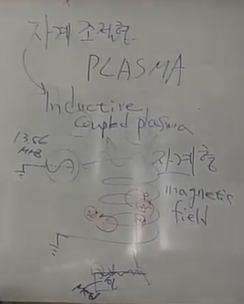 자계 조절형
PLASMA
Inductive
coupled plasma
13.56
MHz
자계형
magnetic
field